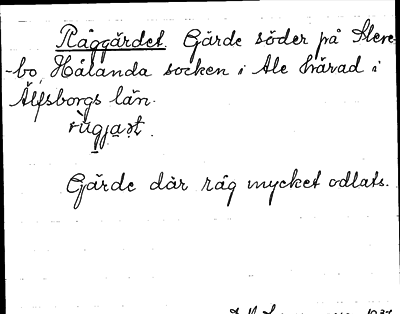 Råggärdet. Gärde söder på Steve-
-bo, Hålanda socken i Ale härad i
Älfsborgs län.
rùgjaṣt.
Gärde där råg mycket odlats.